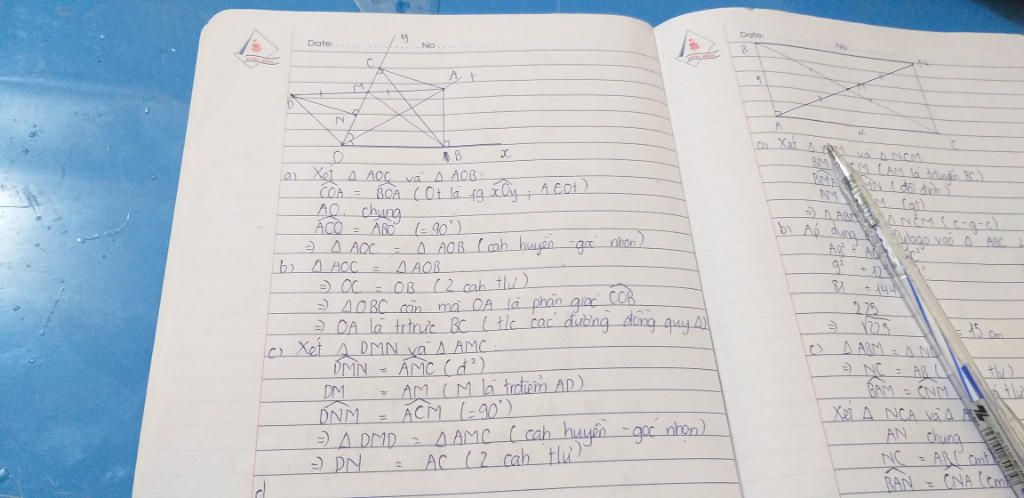 Date: No
y
C
A t
D M
N
O B x
a) Xét Δ AOC và Δ AOB:
COA = BOA (Ot là fg xOy; A∈Ot)
AO: chung
ACO = ABO (=90°)
=> Δ AOC = Δ AOB (cạh huyền - góc nhọn)
b) Δ AOC = Δ AOB
=> OC = OB (2 cạh tlư)
=> ΔOBC cân mà OA là phân giác COB
=> OA là trtrực BC (t/c các đường đồng quy Δ)
c) Xét Δ DMN và Δ AMC:
DMN = AMC (đ²)
DM = AM (M là trđiểm AD)
DNM = ACM (=90°)
=> Δ DMD = Δ AMC (cạh huyền - góc nhọn)
=> DN = AC (2 cạh tlư)
d
Date: No
B N
9 M
A C
a) Xét Δ và Δ NCM
BM CM (AM là trtuyến BC)
BMA MN (đối đỉnh)
AM M (gt)
=> Δ ABM Δ NCM (c-g-c)
b) Áp dụng vào Δ ABC
AB²
9² + 12
81 + 144
225
=> √225 = 15 cm
c) Δ ABM = Δ
=> NC = AB ( tlư)
BAM = CNM
Xét Δ NCA và Δ
AN chung
NC = AB( cmt
BAN = CNA (cm